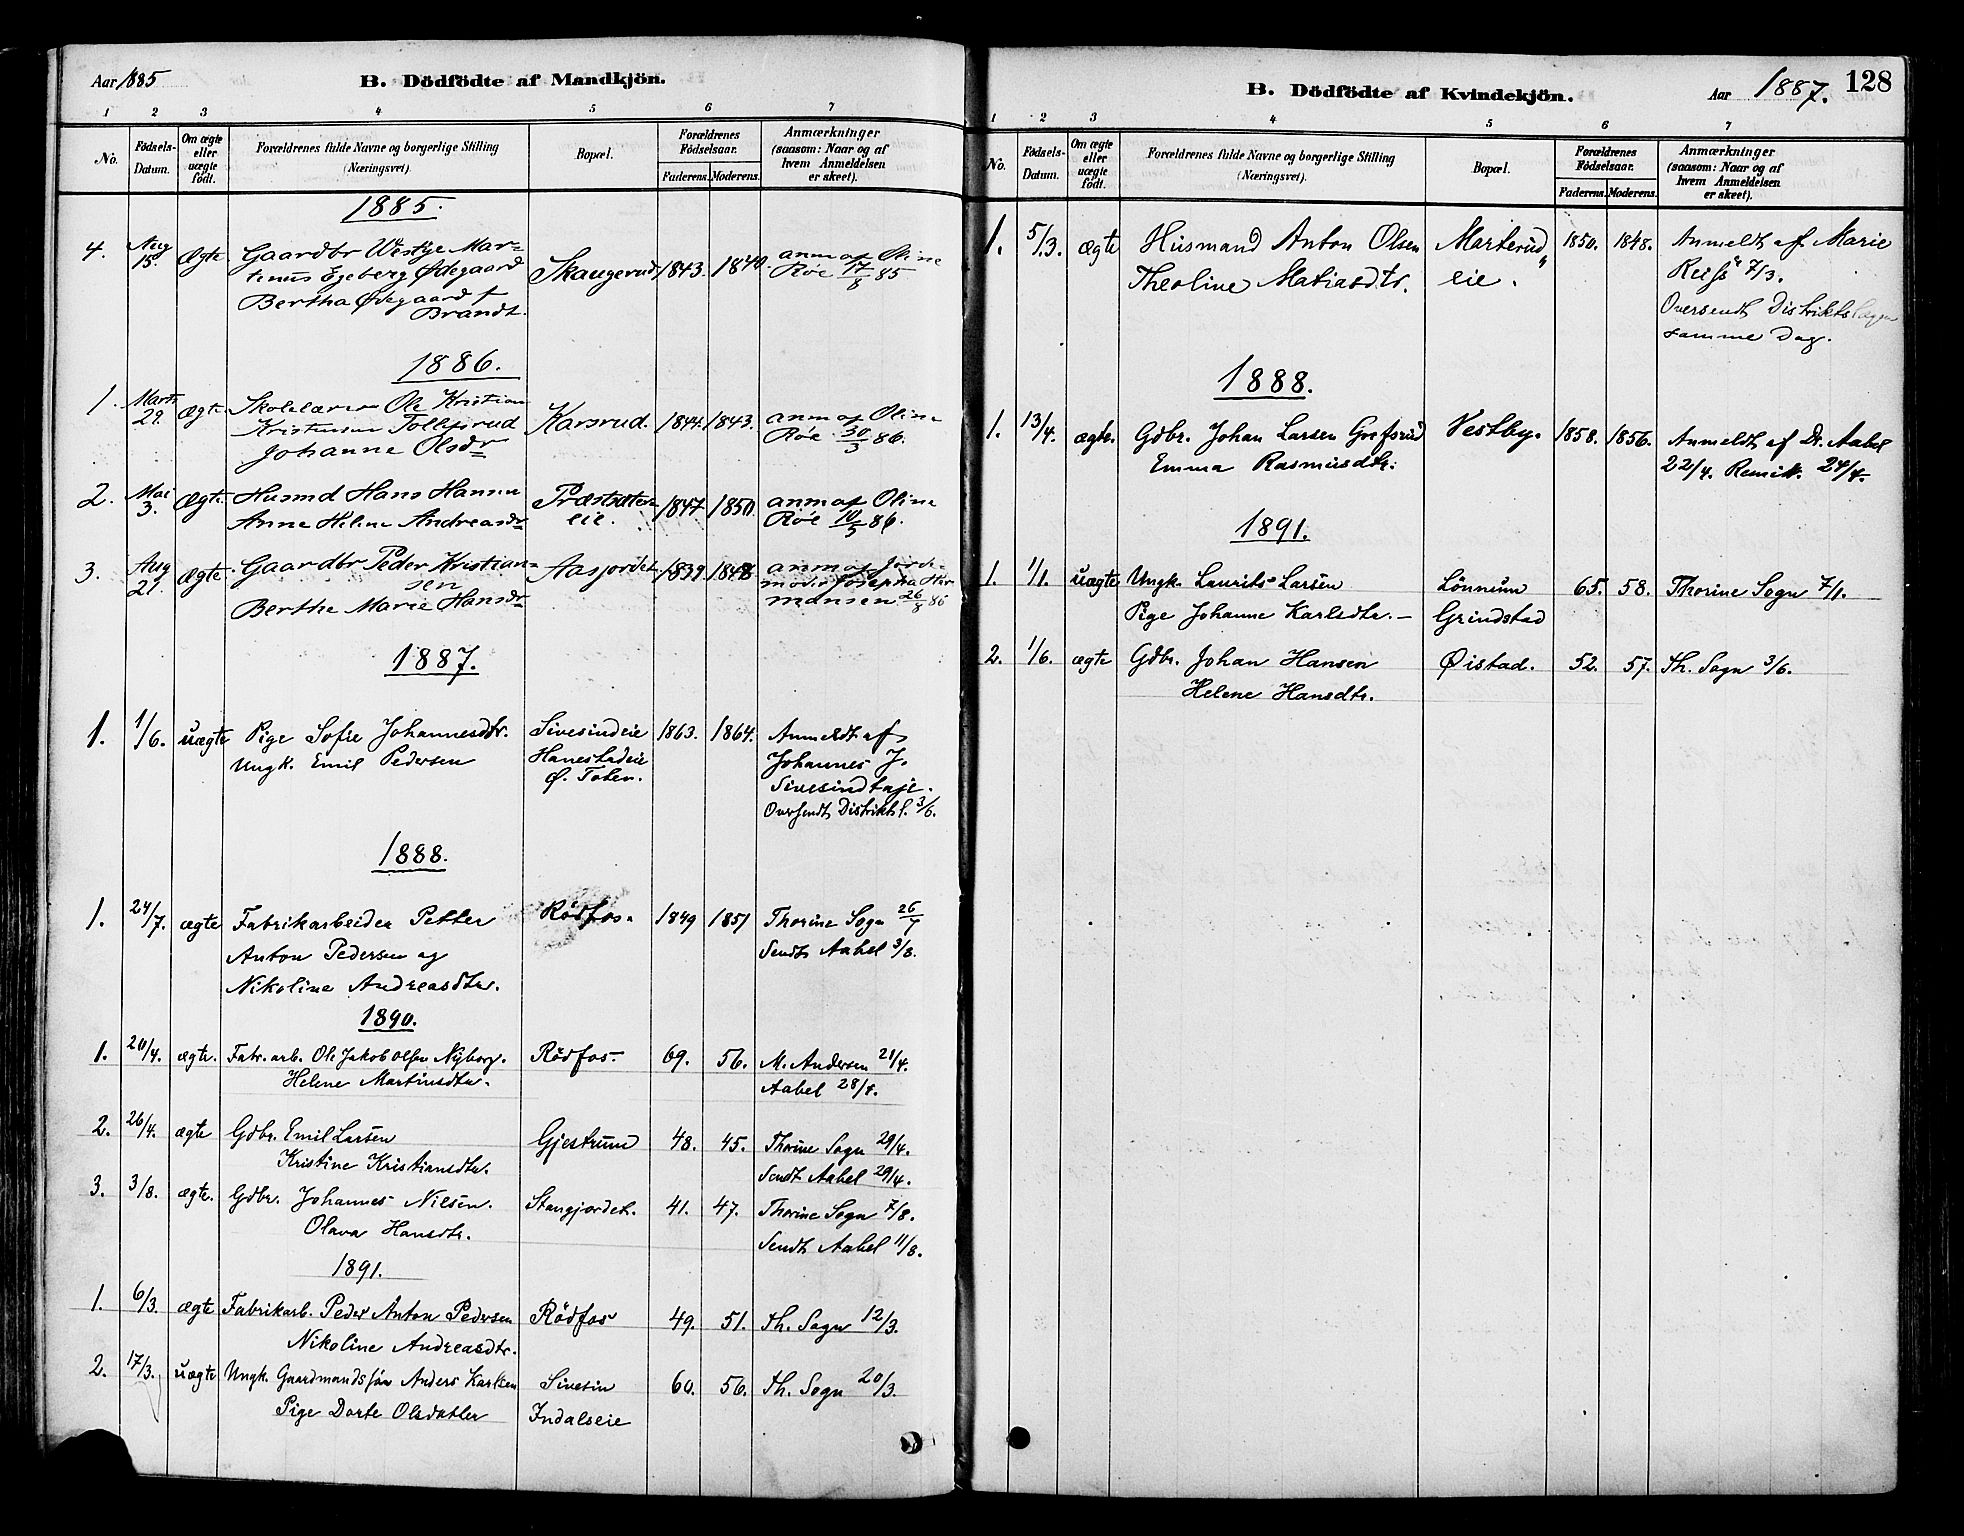 Aar 1885
B. Dödfödte af Mandkjön.
1 2 3 4 5 6 7
No.
Födsels-Datum.
Om ægte eller uægte födt.
Forældrenes fulde Navne og borgerlige Stilling (Næringsvei).
Bopæl.
Forældrenes Födselsaar.
Faderens. Moderens.
Anmærkninger (saasom: Naar og af hvem Anmeldelsen er skeet).
1885.
4. Aug 15. Ægte Gaardbr Westye Mar= Skaugerud 1843. 1840. anm af Oline
tenus Egeberg Ødegaard Röe 17/8 85
Bertha Ødegaard f
Brandt.
1886.
1. Marts 29. ægte. Skolelærer Ole Kristian Karsrud. 1844. 1843. anm af Oline
Kristensen Tollefsrud Röe 30/3 86.
Johanne Olsdr
2. Mai 3. Ægte. Husmd Hans Hansen Præstsæter- 1847 1850. anm af Oline
Anne Helene Andreasdr eie. Röe 10/5 86.
3. Aug 21. ægte. Gaardbr Peder Kristian- Aasjordet 1839 1848 anm af Jorde-
sen moder Josepha Her
Berthe Marie Hansdr mansen 26/8 86
1887.
1. 1/6. uægte Pige Sofie Johannesdtr. Sivesindeie 1863. 1864. Anmeldt af
Ungk. Emil Pedersen Hanestadeie Johannes J.
Ø. Toten. Sivesindeje.
Oversendt Distriktsl. 3/6.
1888.
1. 24/7. ægte Fabrikarbeider Petter Rödfos. 1849 1851 Thorine Sogn 26/7
Anton Pedersen og Sendt Aabel 3/8.
Nikoline Andreasdtr.
1890.
1. 20/4. ægte. Fabr. arb. Ole Jakob Olsen Nyborg. Rödfos- 69. 56. M. Andersen 21/4.
Helene Martinsdtr. Aabel 28/4.
2. 26/4. ægte Gdbr. Emil Larsen Gjestrum 48. 45. Thorine Sogn 29/4.
Kristine Kristiansdtr. Sendt Aabel 29/4.
3. 3/8. ægte. Gdbr. Johannes Nilsen. Stangjordet. 41. 47. Thorine Sogn 7/8.
Olava Hansdtr. Sendt Aabel 11/8.
1891.
1. 6/3. ægte Fabrikarb. Peder Anton Pedersen Rödfos 49. 51. Th. Sogn 12/3.
Nikoline Andreasdtr.
2. 17/3. uægte Ungk. Gaardmandssön Anders Karlsen Sivesin 60. 56. Th. Sogn 20/3.
Pige Dorte Olsdatter Indalseie
B. Dödfödte af Kvindekjön.
Aar 1887. 128
1 2 3 4 5 6 7
No.
Födsels-Datum.
Om ægte eller uægte födt.
Forældrenes fulde Navne og borgerlige Stilling (Næringsvei).
Bopæl.
Forældrenes Födselsaar.
Faderens. Moderens.
Anmærkninger (saasom: Naar og af hvem Anmeldelsen er skeet).
1. 5/3. ægte Husmand Anton Olsen Marterud 1850. 1848. Anmeldt af Marie
Theoline Matiasdtr. eie. 7/3.
Oversendt Distriktslægen
samme Dag.
1888.
1. 13/4. ægte. Gdbr. Johan Larsen Grefsrud Vestby. 1858. 1856. Anmeldt af Dr. Aabel
Emma Rasmusdtr. 22/4. 24/4.
1891.
1. 1/1. uægte Ungk. Laurits Larsen Lönnum 65. 58. Thorine Sogn 7/1.
Pige Johanne Karlsdtr. - Grindstad
2. 1/6. ægte Gdbr. Johan Hansen Øistad. 52. 57. Th. Sogn 3/6.
Helene Hansdtr.